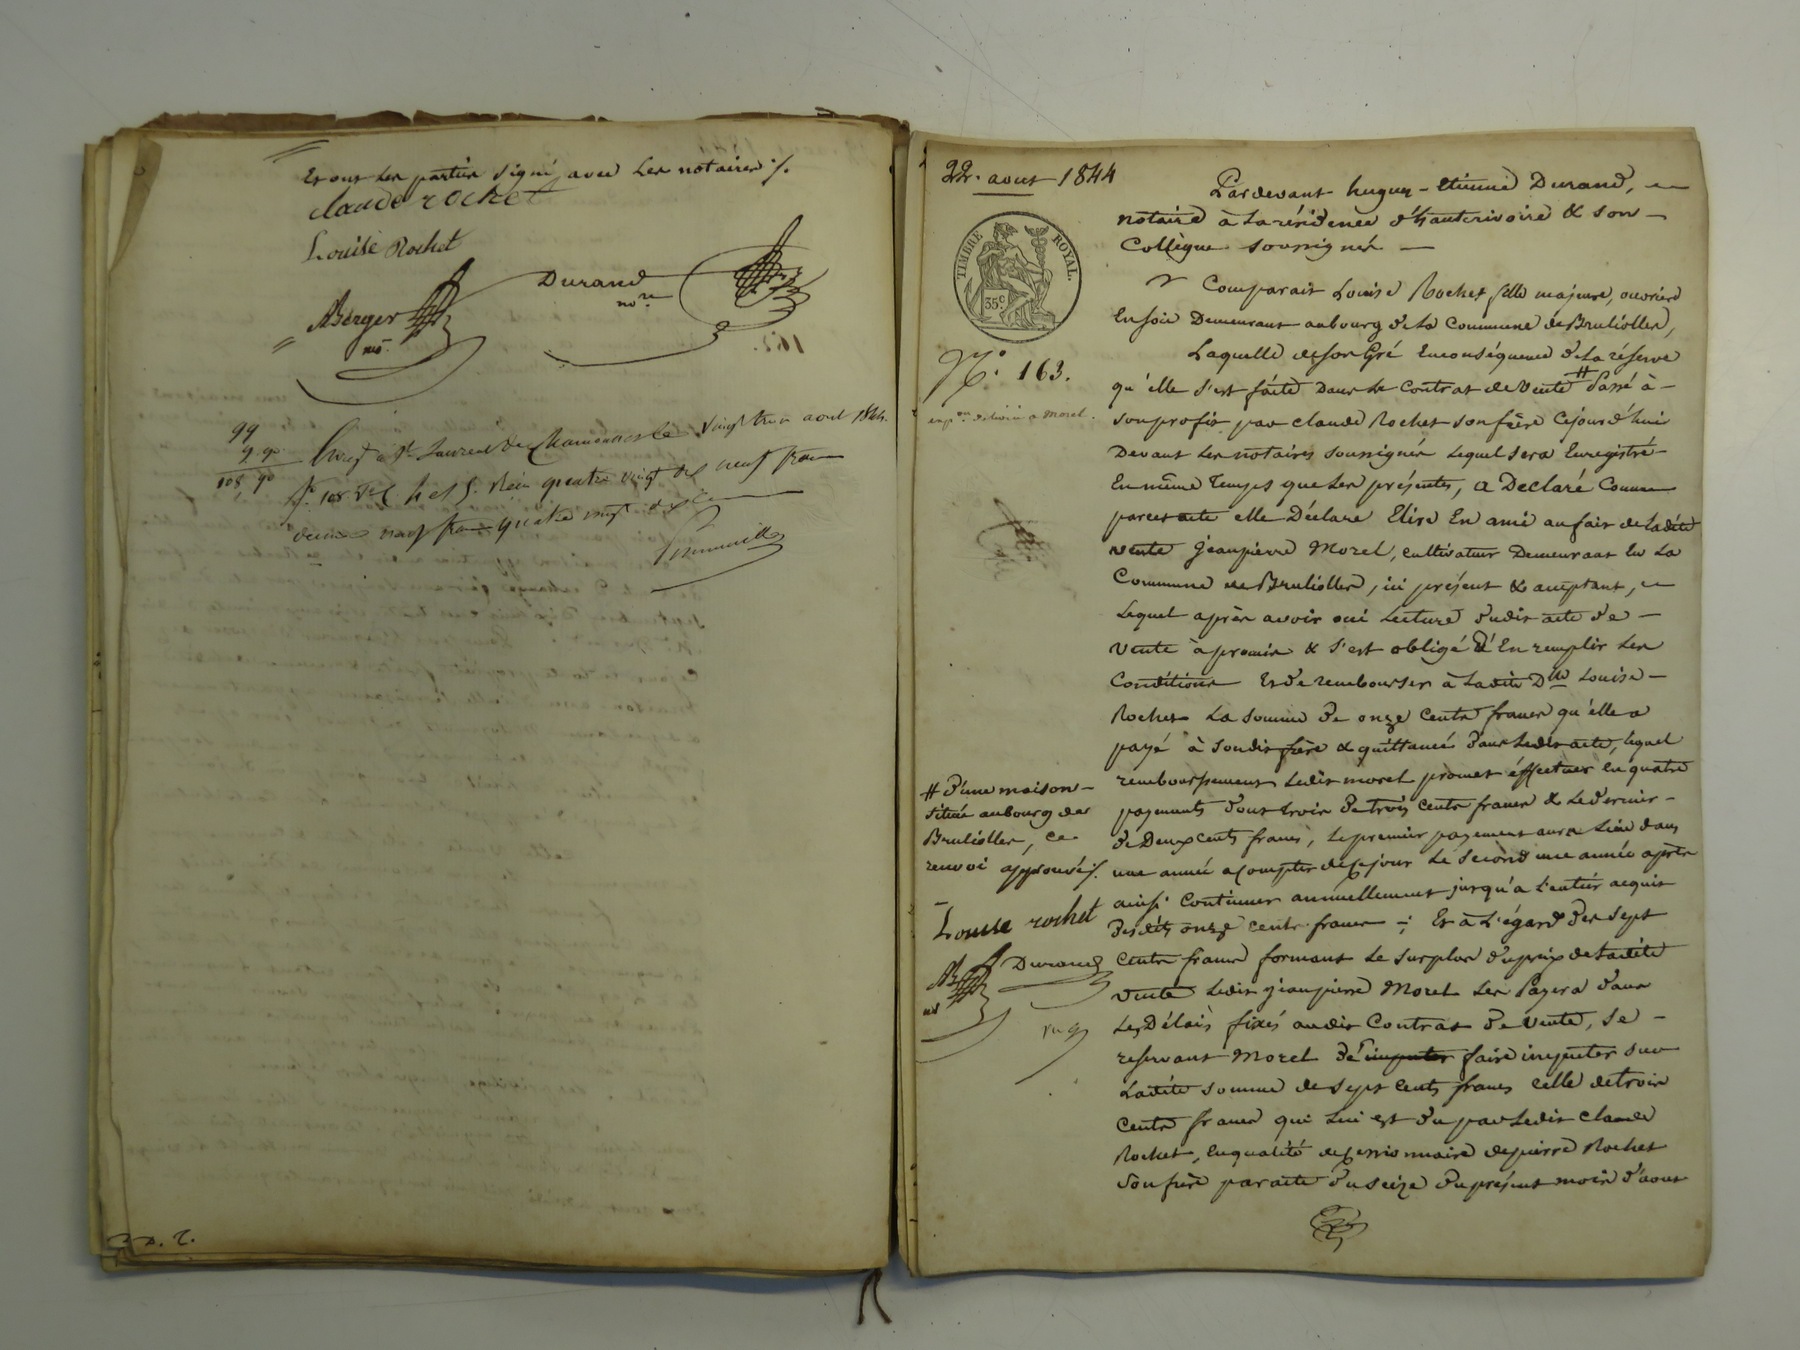 Et ont les parties signé, avec les notaires ./.
claude rochet
Louise Rochet
Durand
nore
ABerger
nore.
99
9. 90
108, 90
St Laurent de Chamousset le vingt trois aout 1844.
fo 108 quatre vingt dix neuf francs
decime neuf francs quatre vingt dix
D. R.
22. aout 1844
TIMBRE ROYAL.
35c
No. 163.
expon délivrée a Morel.
# d'une maison -
située au bourg de
Brullioller, ce
renvoi approuvé ./.
Louise rochet
Durand
Pardevant hugues-étienne Durand,
notaire à la résidence d'hauterivoire & son -
Collègue soussignés -
Comparait Louise Rochet fille majeure, ouvrière
En soie Demeurant au bourg de la Commune de Brullioller,
Laquelle de son Gré En conséquence de la réserve
qu'elle s'est faite Dans le Contrat de vente # Passé à -
son profit par claude Rochet son frère Cejourd'hui
Devant les notaires soussignés Lequel sera Enregistré
En même Temps que les présentes, a Declaré Comme
par cet acte elle Déclare Elire En ami au fait de Ladite
vente jeanpierre Morel, cultivateur Demeurant En La
Commune de Brullioller, ici présent & acceptant,
Lequel après avoir oui Lecture dudit acte de -
vente à promis & s'est obligé D'En remplir Les
Conditions Et de rembourser à Ladite Dlle Louise -
Rochet La somme de onze Cents francs qu'elle a
payé à sondit frère & quittancés dans Ledit acte, lequel
remboursement Ledit morel promet éffectuer En quatre
payements dont trois de trois Cents francs & Le dernier -
de Deux cents francs, le premier payement aura Lieu dans
une année a Compter de ce jour Le Second une année après
ainsi Continuer annuellement jusqu'a L'entier acquit
desdits onze Cents francs ; Et à L'égard des sept
Cents francs formant Le surplus du prix de Ladite
vente Ledit jeanpierre Morel Les Payera dans
Les Délais fixés audit Contrat de vente, se -
reservant Morel de faire imputer sur
Ladite somme de sept Cents francs celle de trois
Cents francs qui Lui est du par Ledit Claude
Rochet, En qualité de cessionnaire de pierre Rochet
son frère par acte du seize du présent mois d'aout